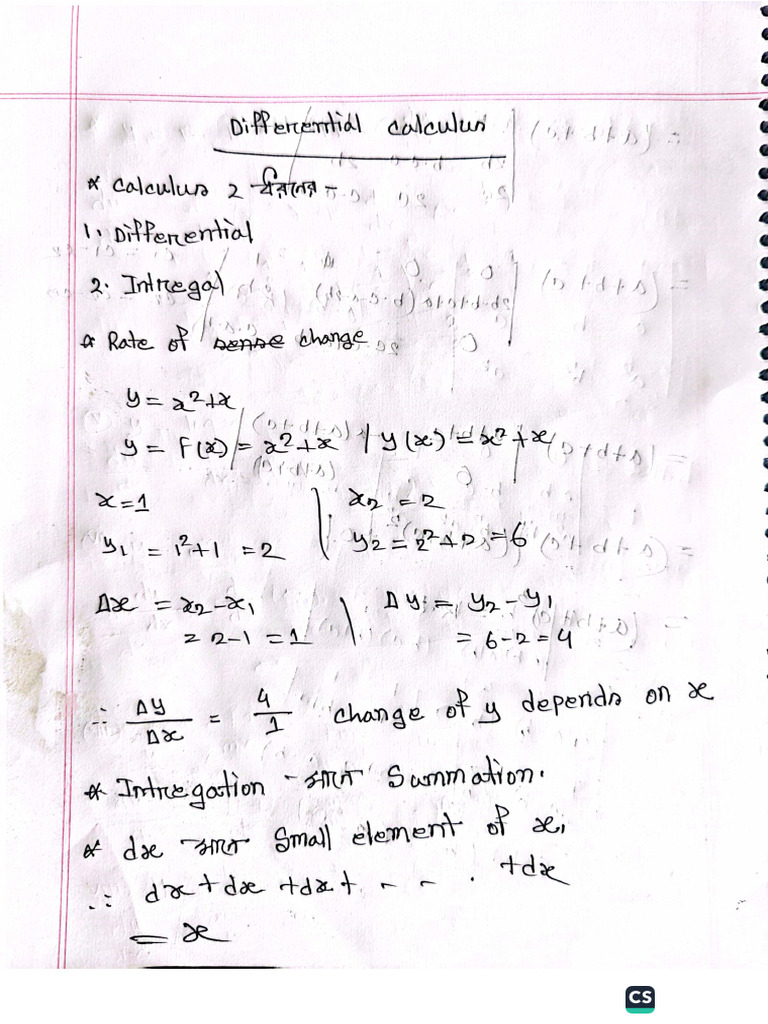 Differential calculus
* Calculus 2 ধরনের -
1. Differential
2. Intregal
* Rate of sense change
y = x²+x
y = F(x) = x²+x | y(x) = x²+x
x = 1 | x₂ = 2
y₁ = 1²+1 = 2 | y₂ = 2²+2 = 6
Δx = x₂-x₁ | Δy = y₂-y₁
= 2-1 = 1 | = 6-2 = 4
∴ Δy/Δx = 4/1 change of y depends on x
* Intregation - মানে Summation.
* dx মানে Small element of x,
∴ dx + dx + dx + - - . + dx
= x
CS